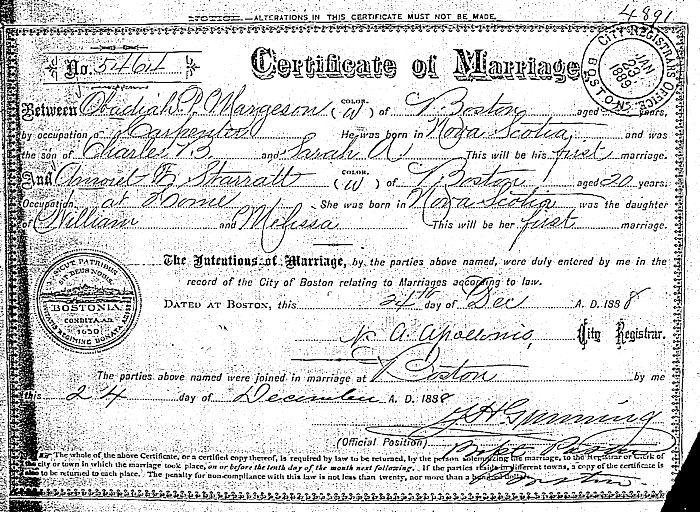 4891
NOTICE.—ALTERATIONS IN THIS CERTIFICATE MUST NOT BE MADE.
No. 5464
Certificate of Marriage
CITY REGISTRAR'S OFFICE BOSTON JAN 23 1889
Between Obadiah P. Margeson (COLOR. W) of Boston aged years,
by occupation a Carpenter He was born in Nova Scotia and was
the son of Charles B. and Sarah A This will be his first marriage.
And Amoret E. Starratt (COLOR. W) of Boston aged 20 years.
Occupation, at Home She was born in Nova Scotia was the daughter
of William and Melissa This will be her first marriage.
The Intentions of Marriage, by the parties above named, were duly entered by me in the
record of the City of Boston relating to Marriages according to law.
SICUT PATRIBUS SIT DEUS NOBIS
BOSTONIA.
CONDITA A.D.
1630.
DATED AT BOSTON, this 24th day of Dec A. D. 1888
N. A. Apollonio, City Registrar.
The parties above named were joined in marriage at Boston by me
this 24 day of December A. D. 1888
H Gunning
(Official Position)
The whole of the above Certificate, or a certified copy thereof, is required by law to be returned, by the person solemnizing the marriage, to the Registrar or Clerk of
the city or town in which the marriage took place, on or before the tenth day of the month next following. If the parties reside in different towns, a copy of the certificate is
to be returned to each place. The penalty for non-compliance with this law is not less than twenty, nor more than a hundred dollars.
Boston